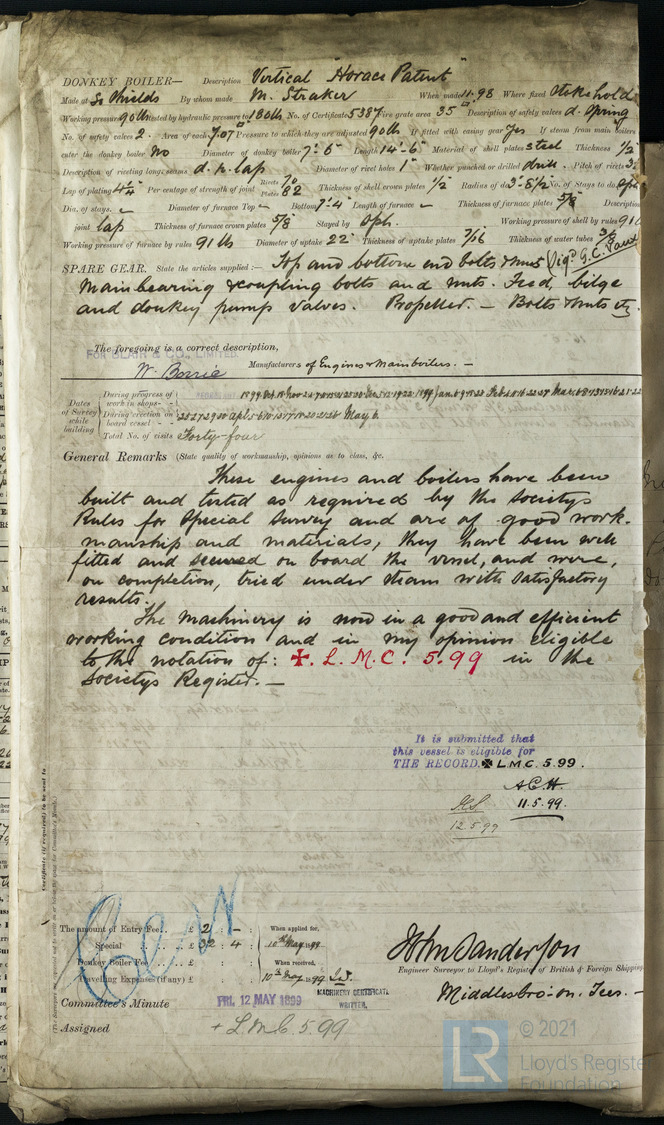 DONKEY BOILER— Description Vertical "Horace Patent"
Made at So Shields By whom made M. Straker When made 11.98 Where fixed Stokehold
Working pressure 90lb tested by hydraulic pressure to 180lb No. of Certificate 5387 Fire grate area 35 Description of safety valves d. Spring
No. of safety valves 2. Area of each 7.07 Pressure to which they are adjusted 90lb If fitted with easing gear Yes If steam from main boilers
enter the donkey boiler No Diameter of donkey boiler 7'.6" Length 14'-6" Material of shell plates steel Thickness 1/2
Description of riveting long. seams d. r. lap Diameter of rivet holes 1" Whether punched or drilled drill. Pitch of rivets
Lap of plating 4 1/4 Per centage of strength of joint Rivets 70 Plates 82 Thickness of shell crown plates 1/2 Radius of do No. of Stays to do
Dia. of stays. Diameter of furnace Top Bottom 7'.4 Length of furnace Thickness of furnace plates 5/8 Description
joint lap Thickness of furnace crown plates 5/8 Stayed by Sph. Working pressure of shell by rules
Working pressure of furnace by rules 91 lb Diameter of uptake 22" Thickness of uptake plates 7/16 Thickness of water tubes 3/8
SPARE GEAR. State the articles supplied:— Top and bottom end bolts & nuts
Main bearing & coupling bolts and nuts. Feed, bilge
and donkey pump valves. Propeller. — Bolts & nuts
The foregoing is a correct description,
FOR BLAIR & CO., LIMITED
W. Borrie Manufacturers of Engines & Main boilers. —
Dates of Survey while building
During progress of work in shops
During erection on board vessel
Total No. of visits Forty-four
General Remarks (State quality of workmanship, opinions as to class, &c.
These engines and boilers have been
built and tested as required by the Societys
Rules for Special Survey and are of good work-
manship and materials, they have been well
fitted and secured on board the vessel, and were,
on completion, tried under steam with satisfactory
results.
The machinery is now in a good and efficient
working condition and in my opinion eligible
to the notation of: ✠. L. M. C. 5.99 in the
Societys Register. —
It is submitted that
this vessel is eligible for
THE RECORD. ✠ L.M.C. 5.99.
11.5.99.
12.5.99
Cert
The amount of Entry Fee £ 2 : – : When applied for,
Special £ 32 : 4 : 10th May 99
Donkey Boiler Fee £ : : When received,
Travelling Expenses (if any) £ : : 10th May 99
John Sanderson
Engineer Surveyor to Lloyd's Register of British & Foreign Shipping
MACHINERY CERTIFICATE
WRITTEN.
Middlesbro'-on-Tees. —
Committee's Minute FRI. 12 MAY 1899
Assigned + L.M.C. 5.99
LR © 2021
Lloyd's Register
Foundation